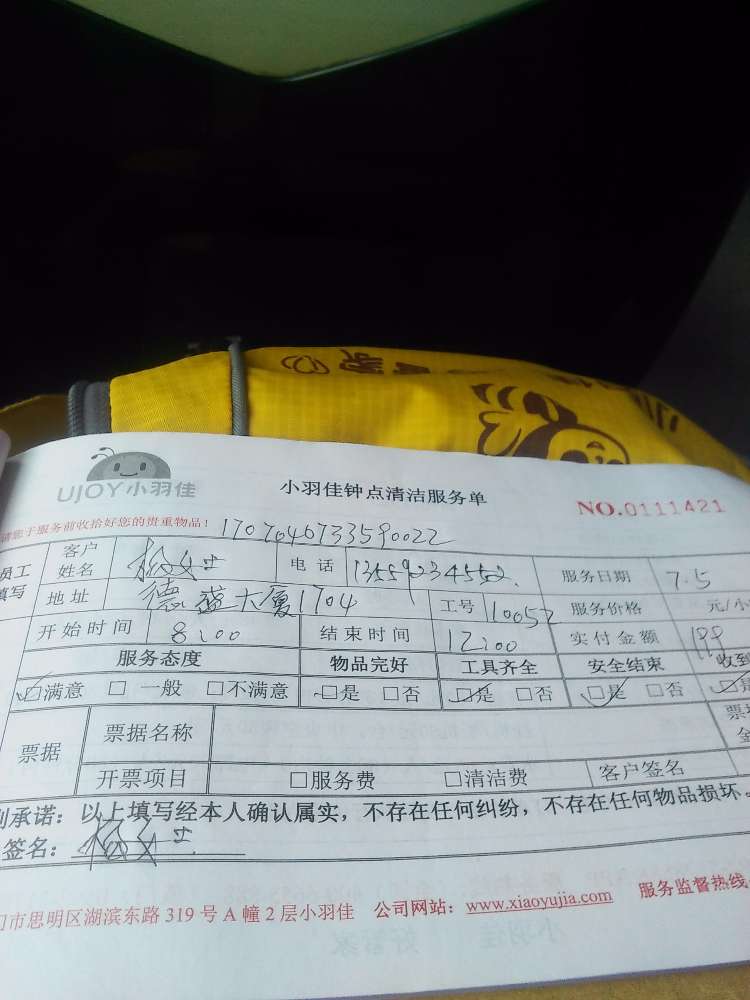 UJOY小羽佳
小羽佳钟点清洁服务单
NO.0111421
请您于服务前收拾好您的贵重物品! 1707046733590022
员工填写 客户姓名 杨女士 电话 13559234552. 服务日期 7.5
地址 德盛大厦1704 工号 110052 服务价格 元/小
开始时间 8:00 结束时间 12:00 实付金额 199
服务态度 物品完好 工具齐全 安全结束 收到
☑满意 □一般 □不满意 ☑是 □否 ☑是 □否 ☑是 □否 ☑是
票据 票据名称 票
开票项目 □服务费 □清洁费 客户签名 金
承诺：以上填写经本人确认属实，不存在任何纠纷，不存在任何物品损坏。
签名：杨女士
门市思明区湖滨东路 319 号 A 幢 2 层小羽佳 公司网站：www.xiaoyujia.com 服务监督热线